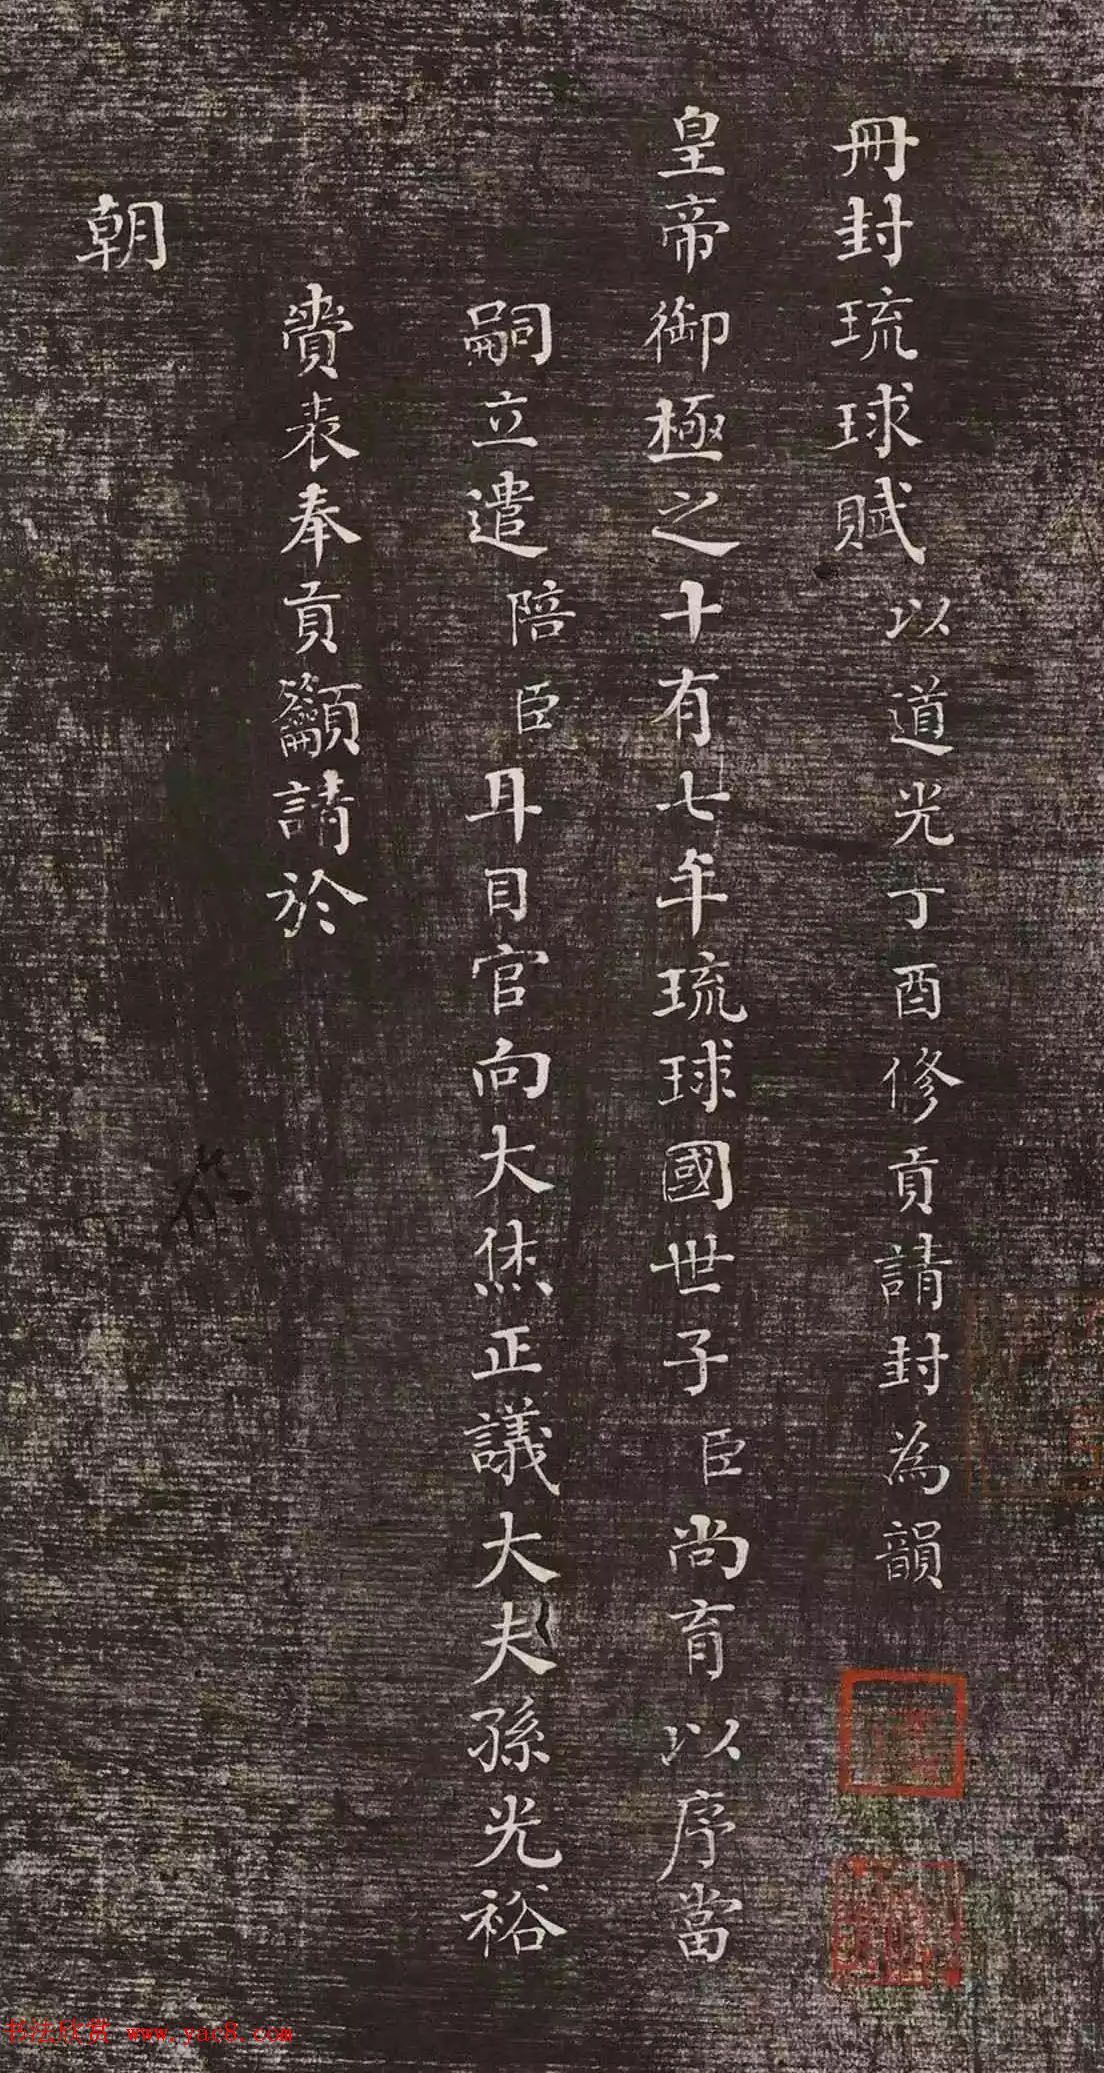 冊封琉球賦 以道光丁酉修貢請封為韻
皇帝御極之十有七年琉球國世子臣尚育以序當
嗣立遣陪臣耳目官向大烋正議大夫孫光裕
賫表奉貢籲請於
朝
书法欣赏 www.yac8.com